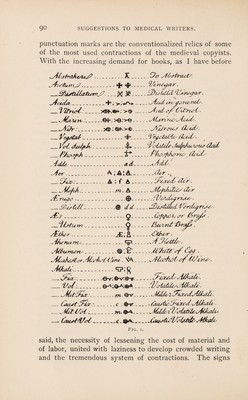 90 SUGGESTIONS TO MEDICAL WRITERS.
punctuation marks are the conventionalized relics of some
of the most used contractions of the medieval copyists.
With the increasing demand for books, as I have before
Abstrahere To Abstract
Acetum Vinegar
Distillatum Distill'd Vinegar
Acida Acid in general
Vitriol Acid of Vitriol
Marin Marine Acid
Nitr Nitrous Acid
Vegetab Vegetable Acid
Vol. Sulph Volatile Sulphureous Acid
Phosph Phosphoric Acid
Adde ad Add
Aer Air
Fix Fixed Air
Meph m. Mephitic Air
Ærugo Verdigrise
Distill Distilled Verdigrise
Æs Copper or Brass
Ustum Burnt Brass
Æther Æ. Æther
Ahenum A Kettle
Albumen White of Egg
Alcohol of Wine
Alkali
Fix Fixed Alkali
Vol Volatile Alkali
Mit Fix m. Mild Fixed Alkali
Caust Fix c. Caustic Fixed Alkali
Mit Vol m. Mild Volatile Alkali
Caust Vol c. Caustic Volatile Alkali
FIG. 1.
said, the necessity of lessening the cost of material and
of labor, united with laziness to develop crowded writing
and the tremendous system of contractions. The signs